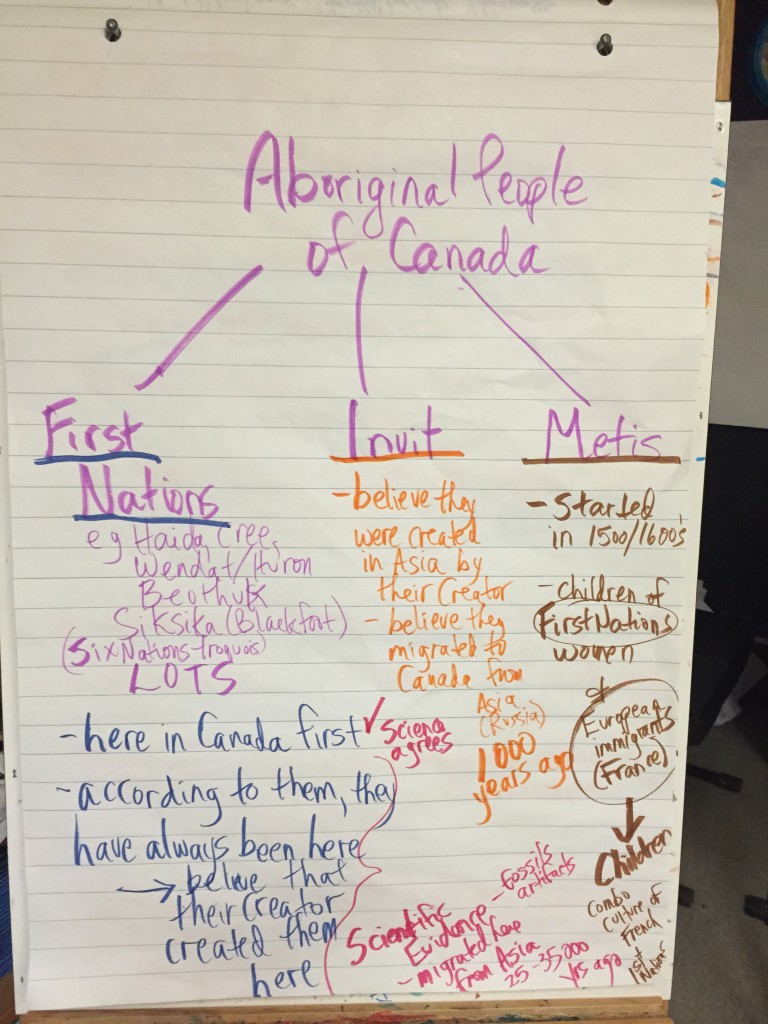 Aboriginal People
of Canada
First
Nations
eg Haida Cree,
Wendat/Huron
Beothuk
Siksika (Blackfoot)
(Six Nations-Iroquois)
LOTS
- here in Canada first
✓ Science
agrees
- according to them, they
have always been here
→ belive that
their Creator
created them
here
Scientific
Evidence - fossils
artifacts
- migrated here
from Asia
25-35 000
yrs ago
Inuit
- believe they
were created
in Asia by
their Creator
- believe they
migrated to
Canada from
Asia
(Russia)
1000
years ago
Metis
- Started
in 1500/1600's
- children of
First Nations
women
+
European
immigrants
(France)
Children
combo
culture of
French
+
1st Nation